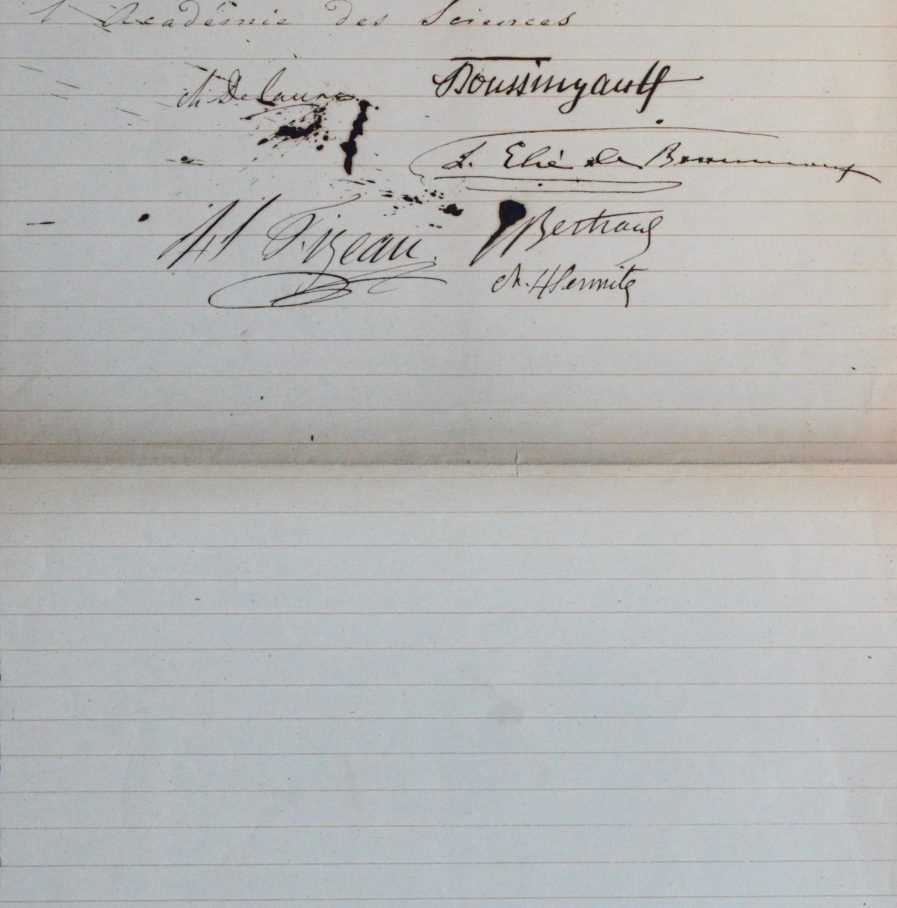 l'Académie des Sciences
Ch Delaunay Boussingault
L. Elie de Beaumont
H Fizeau J Bertrand
Ch. Hermite